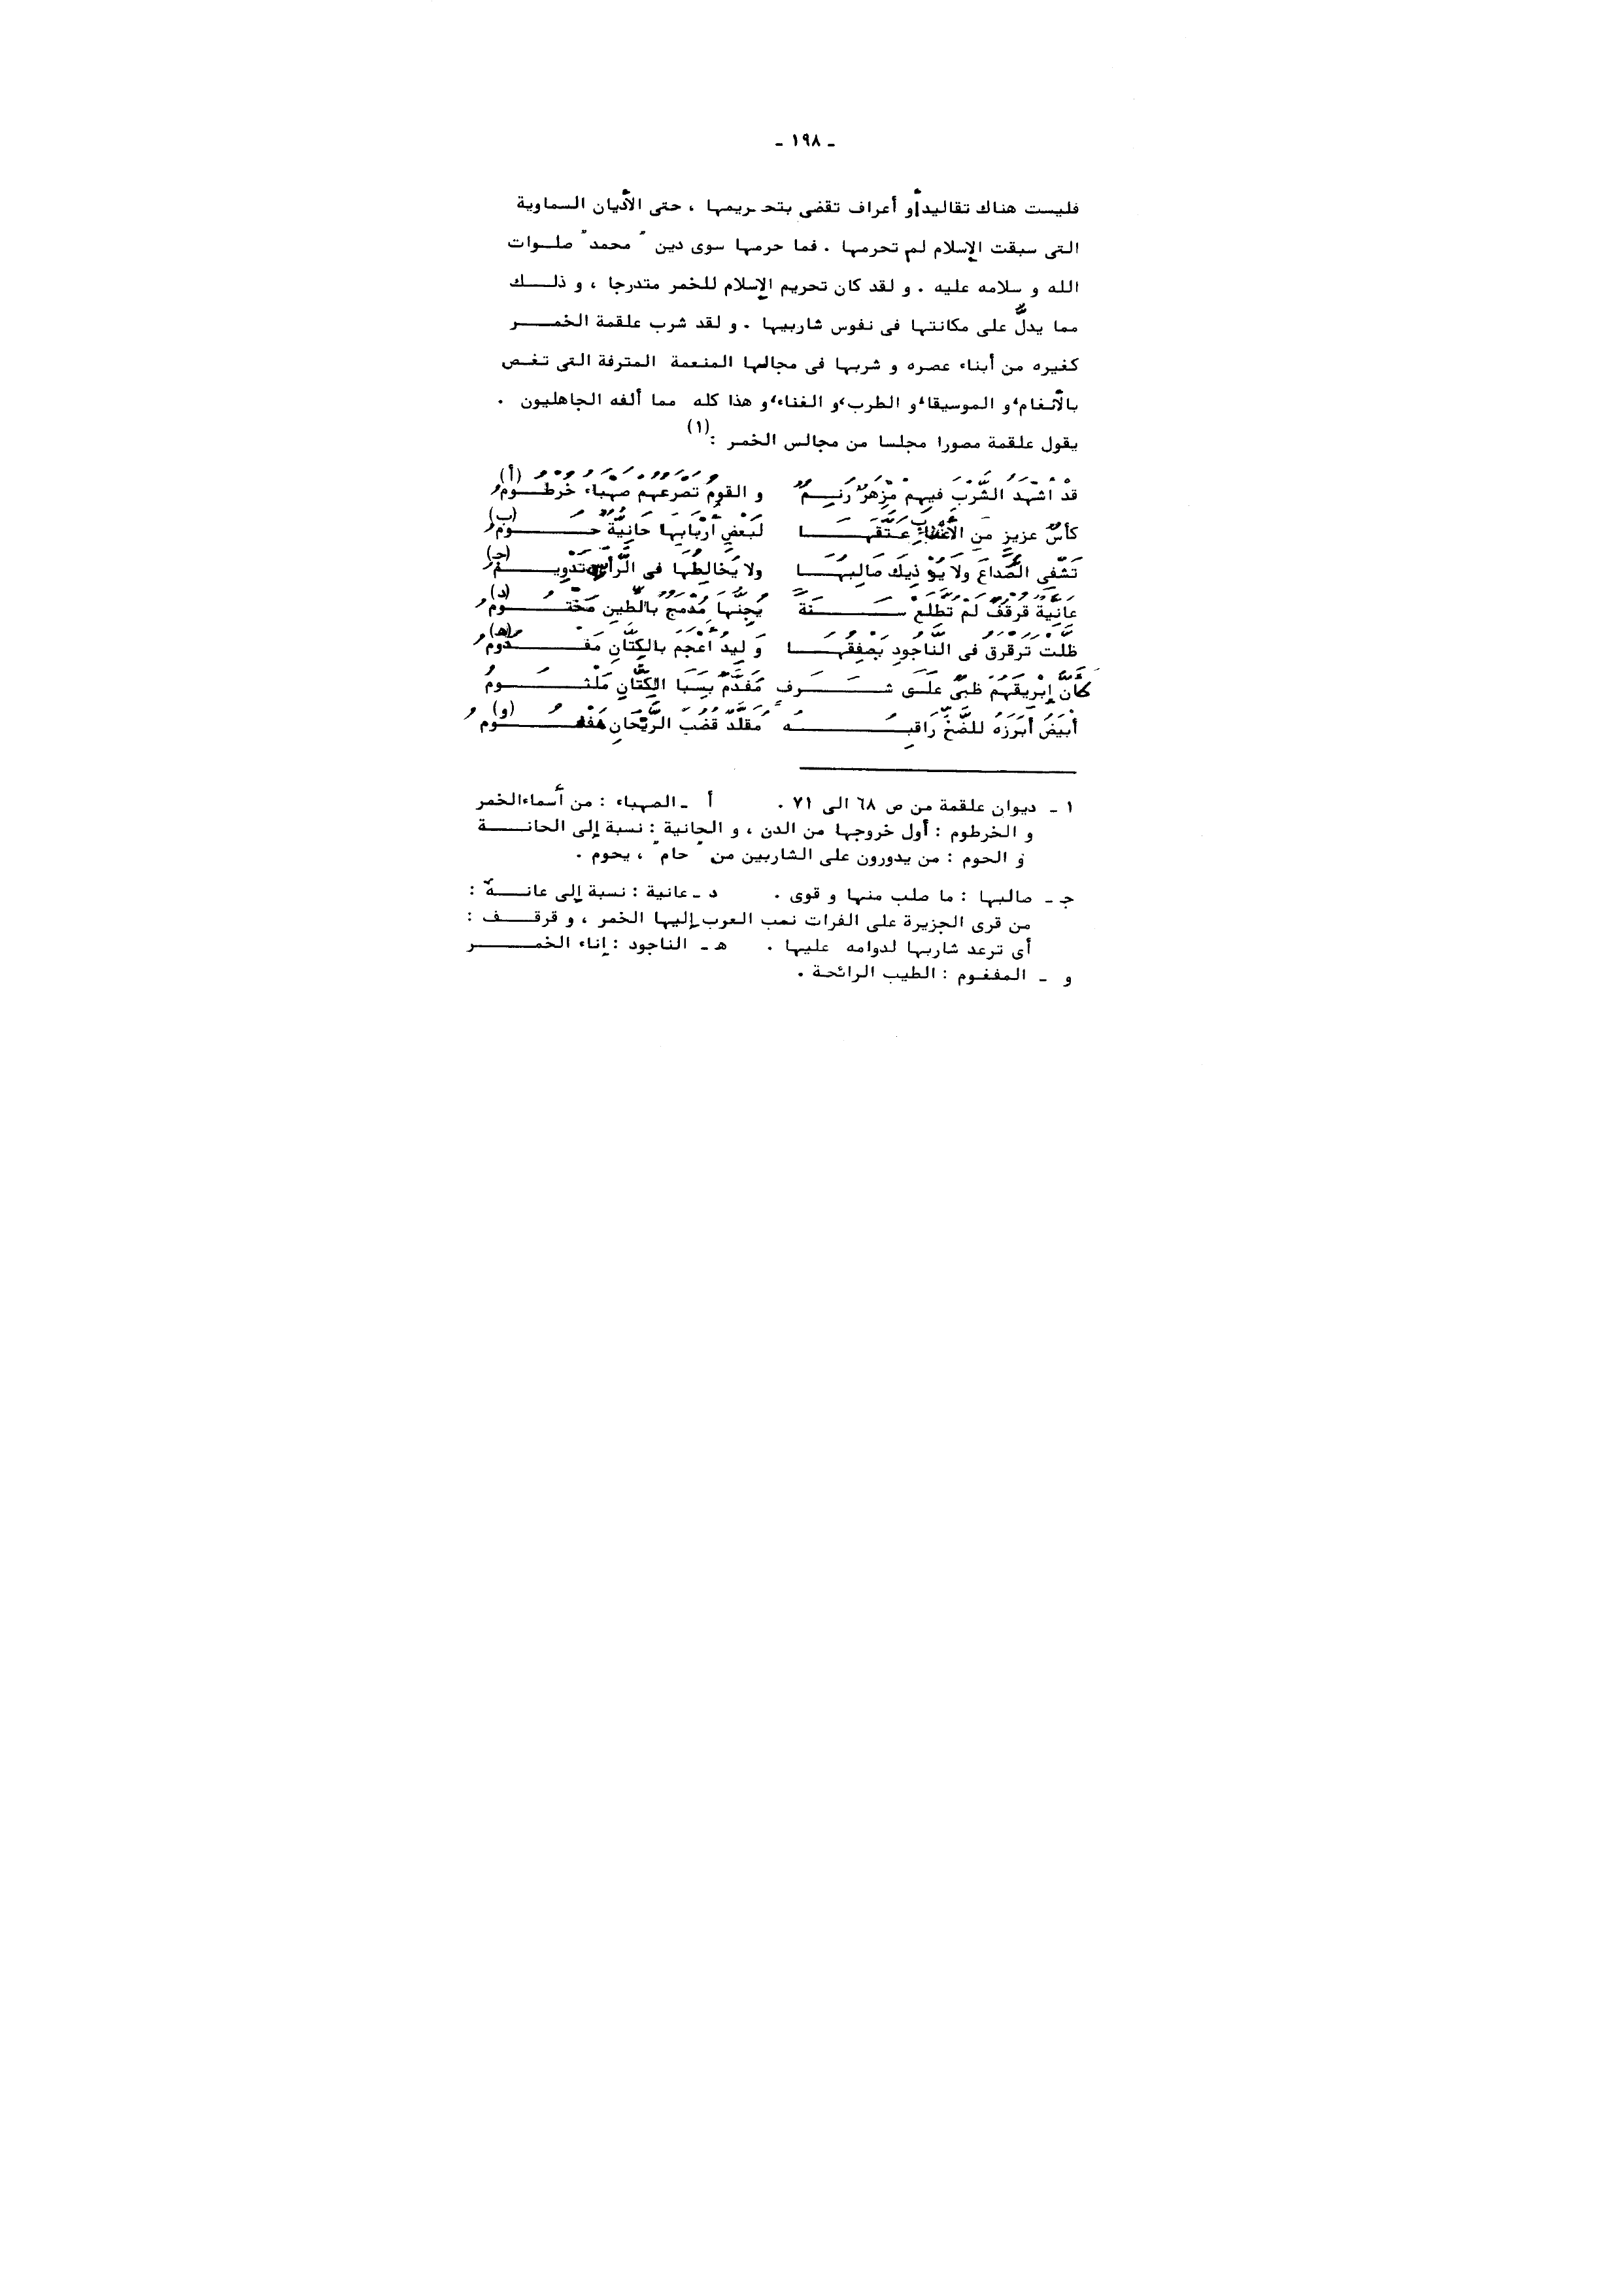 ـ ١٩٨ ـ
فليست هناك تقاليد أو أعراف تقضى بتحريمها ، حتى الأديان السماوية
التى سبقت الإسلام لم تحرمها . فما حرمها سوى دين " محمد " صلوات
الله و سلامه عليه . و لقد كان تحريم الإسلام للخمر متدرجا ، و ذلك
مما يدلُّ على مكانتها فى نفوس شاربيها . و لقد شرب علقمة الخمر
كغيره من أبناء عصره و شربها فى مجالسها المنعمة المترفة التى تغص
بالأنغام، و الموسيقا، و الطرب، و الغناء، و هذا كله مما ألفه الجاهليون .
يقول علقمة مصورا مجلسا من مجالس الخمر : (١)
قَدْ أَشْهَدُ الشَّرْبَ فِيهِمْ مِزْهَرٌ رَنِمٌ و القَوْمُ تَصْرَعُهُمْ صَهْبَاءُ خُرْطُومُ (أ)
كأسُ عزيزٍ مِنَ الأَعْنَابِ عَتَّقَهَا لِبَعْضِ أَرْبَابِهَا حَانِيَّةٌ حُومُ (ب)
تَشْفِى الصُّدَاعَ ولا يُؤْذِيكَ صَالِبُهَا ولا يُخَالِطُهَا فى الرَّأسِ تَدْوِيمُ (جـ)
عَانِيَّةٌ قَرْقَفٌ لَمْ تُطَّلَعْ سَنَةً يُجِنُّهَا مُدْمَجٌ بالطِّينِ مَخْتُومُ (د)
ظَلَّتْ تَرَقْرَقُ فى النَّاجُودِ يُصْفِقُهَا وَلِيدُ أَعْجَمَ بالكِتَّانِ مَفْدُومُ (هـ)
كَأَنَّ إِبْرِيقَهُمْ ظَبْىٌ عَلَى شَرَفٍ مُفَدَّمٌ بِسَبَا الكِتَّانِ مَلْثُومُ
أَبْيَضُ أَبْرَزَهُ للضِّحِّ رَاقِبُهُ مُقَلَّدٌ قُضُبَ الرَّيْحَانِ مَفْغُومُ (و)
١ ـ ديوان علقمة من ص ٦٨ الى ٧١ . أ ـ الصهباء : من أسماء الخمر
و الخرطوم : أول خروجها من الدن ، و الحانية : نسبة إلى الحانة
و الحوم : من يدورون على الشاربين من " حام " ، يحوم .
جـ ـ صالبها : ما صلب منها و قوى . د ـ عانية : نسبة إلى عانة :
من قرى الجزيرة على الفرات نسب العرب إليها الخمر ، و قرقف :
أى ترعد شاربها لدوامه عليها . هـ ـ الناجود : إناء الخمر
و ـ المفغوم : الطيب الرائحة .